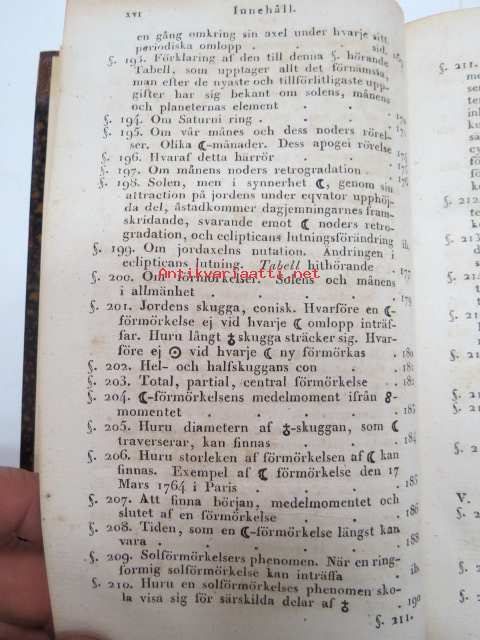 xvi Innehåll.
en gång omkring sin axel under hvarje sitt
periodiska omlopp . . . sid.
§. 193. Förklaring af den till denna §. hörande
Tabell, som upptager allt det förnämsta,
man efter de nyaste och tillförlitligaste upp-
gifter har sig bekant om solens, månens
och planeternas element . . .
§. 194. Om Saturni ring . . .
§. 195. Om vår månes och dess noders rörel-
ser. Olika ☾-månader. Dess apogei rörelse
§. 196. Hvaraf detta härrör . .
§. 197. Om månens noders retrogradation . 176
§. 198. Solen, men i synnerhet ☾, genom sin
attraction på jordens under eqvator upphöj-
da del, åstadkommer dagjemningarnes fram-
skridande, svarande emot ☾ noders retro-
gradation, och eclipticans lutningsförändring ib.
§. 199. Om jordaxelns nutation. Ändringen i
eclipticans lutning. Tabell hithörande 177
§. 200. Om förmörkelser. Solens och månens
i allmänhet . . . . 179
§. 201. Jordens skugga, conisk. Hvarföre en ☾-
förmörkelse ej vid hvarje ☾ omlopp inträf-
far. Huru långt ♁skugga sträcker sig. Hvar-
före ej ☉ vid hvarje ☾ ny förmörkas . 180
§. 202. Hel- och halfskuggans con . . 181
§. 203. Total, partial, central förmörkelse . 182
§. 204. ☾-förmörkelsens medelmoment ifrån ☍-
momentet . . . . . 183
§. 205. Huru diametern af ♁-skuggan, som ☾
traverserar, kan finnas . . . 184
§. 206. Huru storleken af förmörkelsen af ☾ kan
finnas. Exempel af ☾ förmörkelse den 17
Mars 1764 i Paris . . . . 185
§. 207. Att finna början, medelmomentet och
slutet af en förmörkelse . . . 186
§. 208. Tiden, som en ☾-förmörkelse längst kan
vara . . . . . 188
§. 209. Solförmörkelsers phenomen. När en ring-
formig solförmörkelse kan inträffa . ib.
§. 210. Huru en solförmörkelses phenomen sko-
la visa sig för särskilda delar af ♁ . 190
§. 211.
Antikvariaatti.net
§. 211.
§. 212
§. 213
§. 214
§. 215
V.